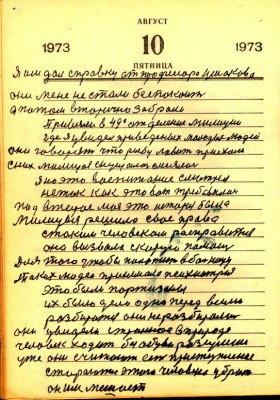 АВГУСТ
1973 10 1973
ПЯТНИЦА
Я им дал справку от профессора Ушакова
они мене не стали беспокоит
а потом вторично забрали
Привели в 49е отделение милиции
где я увидел приведеных молодых людей
они говорят что рибу лавит приехали
с них милиция
Я на это воспитание смотрел
не так как это вот требовали
под вечер моя это
Милиция решило свое право
с таким человеком расправится
она вызвала скорую помощ
Для того чтобы положит в болницу
Таких людей принимает психиатрия
Это были партизаны
их было дело одно перед всеми
разбирался они не разбирали
они увидели странное в природе
человек ходит бы обува разувши
уже они считают ето приступление
стараются этого человека убрат
он им мешает